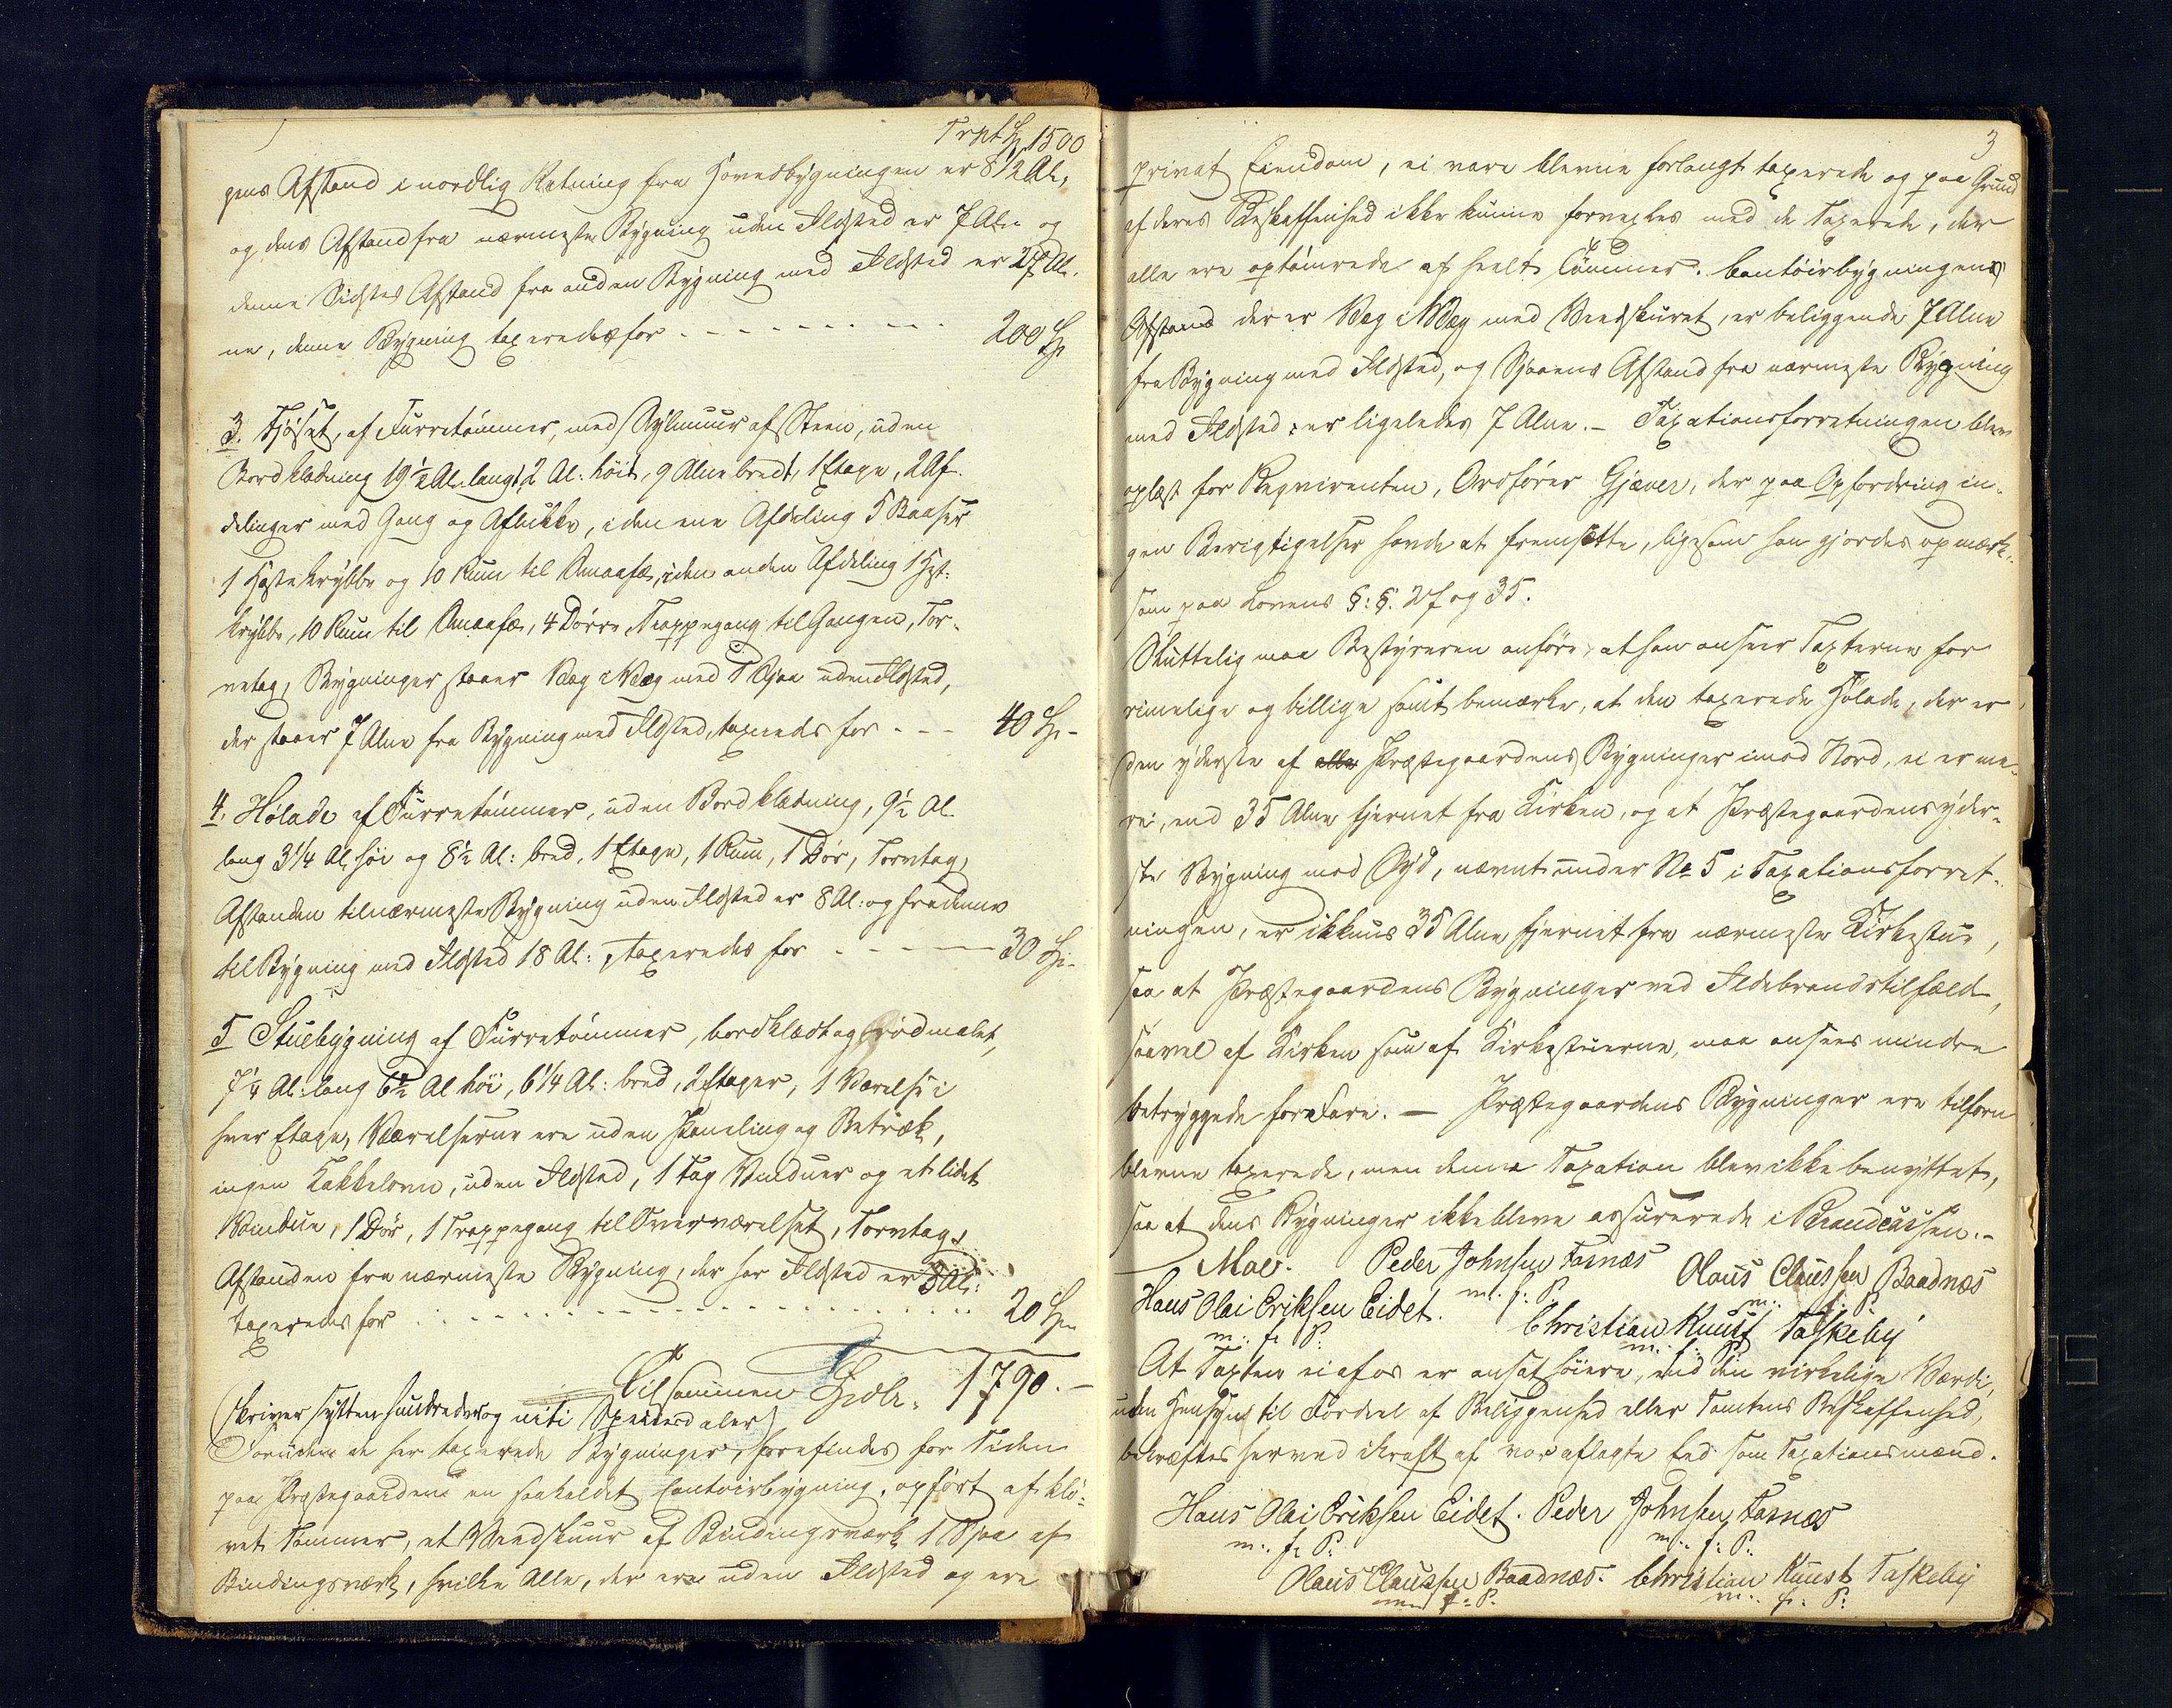 Trpt Sp 1500
gens Afstand i nordlig Retning fra Hovedbygningen er 8 1/2 Al,
og dens Afstand fra nærmeste Bygning uden Ildsted er 7 Aln og
denne Sidstes Afstand fra anden Bygning med Ildsted er 27 Al.
ne, denne Bygning taxeredes for - - - - - - - - 200 Sp
3. Fjöset, af Furretömmer, med Sylmuur af Steen, uden
Bordklædning 19 1/2 Al. langt, 2 Al: höit, 9 Alne bredt, 1 Etage, 2 Af-
delinger med Gang og Aflukke, i den ene Afdeling 5 Baaser
1 Hestekrybbe og 10 Rum til Smaafæ, i den anden Afdeling 1 Hest-
krybbe, 10 Rum til Smaafæ, 4 Dörre, Trappegang til Gangen, Tor-
vetag, Bygninger staaer Væg i Væg med 1 Sjaa uden Ildsted,
der staaer 7 Alne fra Bygning med Ildsted, taxeredes for - - - 40 Sp -
4. Hölade af Furretömmer, uden Bordklædning, 9 1/2 Al.
lang 3 1/4 Al, höi og 8 1/2 Al: bred, 1 Etage, 1 Rum, 1 Dör, Torvtag,
Afstanden til nærmeste Bygning uden Ildsted er 8 Al: og fra denne
til Bygning med Ildsted 18 Al: , taxeredes for - - - - 30 Sp -
5 Stuebygning af Furretömmer, bordklædt og rödmalet,
7 1/4 Al: lang 6 1/2 Al höi, 6 1/4 Al: bred, 2 Etager, 1 Værelse i
hver Etage, Værelserne ere uden Paneling og Betræk,
ingen Kakkelovn, uden Ildsted, 1 Fag Vinduer og et lidet
Vindue, 1 Dör, 1 Trappegang til Overværelset, Torvtag,
Afstanden fra nærmeste Bygning, der har Ildsted er 8 Al:
taxeredes for - - - - - - - - - - - 20 Sp -
Tilsammen Spdlr. 1790. -
(skriver sytten hundrede og niti Speciedaler)
Foruden de her taxerede Bygninger, forefindes for Tiden
paa Præstegaarden en saakaldet Contoirbygning, opfört af klö-
vet Tömmer, et Vedskuur af Bindingsværk 1 Sjaa af
Bindingsværk, hvilke Alle, der ere uden Ildsted og ere
3
privat Eiendom, ei vare blevne forlangt taxerede og paa Grund
af deres Beskaffenhed ikke kunne forvexles med de Taxerede, der
alle ere optömrede af heelt Tömmer. Contoirbygningens
Afstand der er Væg i Væg med Vedskuret, er beliggende 7 Alne
fra Bygning med Ildsted, og Sjaaens Afstand fra nærmeste Bygning
med Ildsted : er ligeledes 7 Alne. - Taxationsforretningen blev
oplæst for Reqvirenten, Ordförer Gjæver, der paa Opfordring in-
gen Berigtigelser havde at fremsætte, ligesom han gjordes opmærk-
som paa Lovens §: §. 27 og 35.
Sluttelig maa Bestyreren anföre, at han anseer Taxterne for
rimelige og billige samt bemærke, at den taxerede Hölade, der er
den yderste af alle Præstegaardens Bygninger imod Nord, ei er me-
re, end 35 Alne fjernet fra Kirken, og at Præstegaardens yder-
ste Bygning mod Syd, nævnt under No 5 i Taxationsforret-
ningen, er ikkuns 35 Alne fjernet fra nærmeste Kirkestue,
saa at Præstegaardens Bygninger ved Ildebrandstilfæld,
saavel af Kirken som af Kirkestuerne, maa ansees mindre
betryggede for Fare. - Præstegaardens Bygninger ere tilforn
blevne taxerede, men denne Taxation blev ikke benyttet,
saa at dens Bygninger ikke bleve assurerede i Brandcassen. -
Moe. Peder Johnsen Tarnes Olaus Claussen Baadnæs
m: f: P. m: f: P.
Hans Olai Eriksen Eidet. Christian Kuust Taskeby
m: f: P: m: f: P:
At Taxten ei af os er ansat höiere, end den virkelige Værdi,
uden Hensyn til Fordeel af Beliggenhed eller Tomtens Beskaffenhed,
bekræftes herved i kraft af vor aflagte Eed som Taxationsmænd.
Hans Olai Eriksen Eidet. Peder Johnsen Tarnes
m: f: P: m: f: P:
Olaus Claussen Baadnæs. Christian Kuust Taskeby
m: f: P. m: f: P: